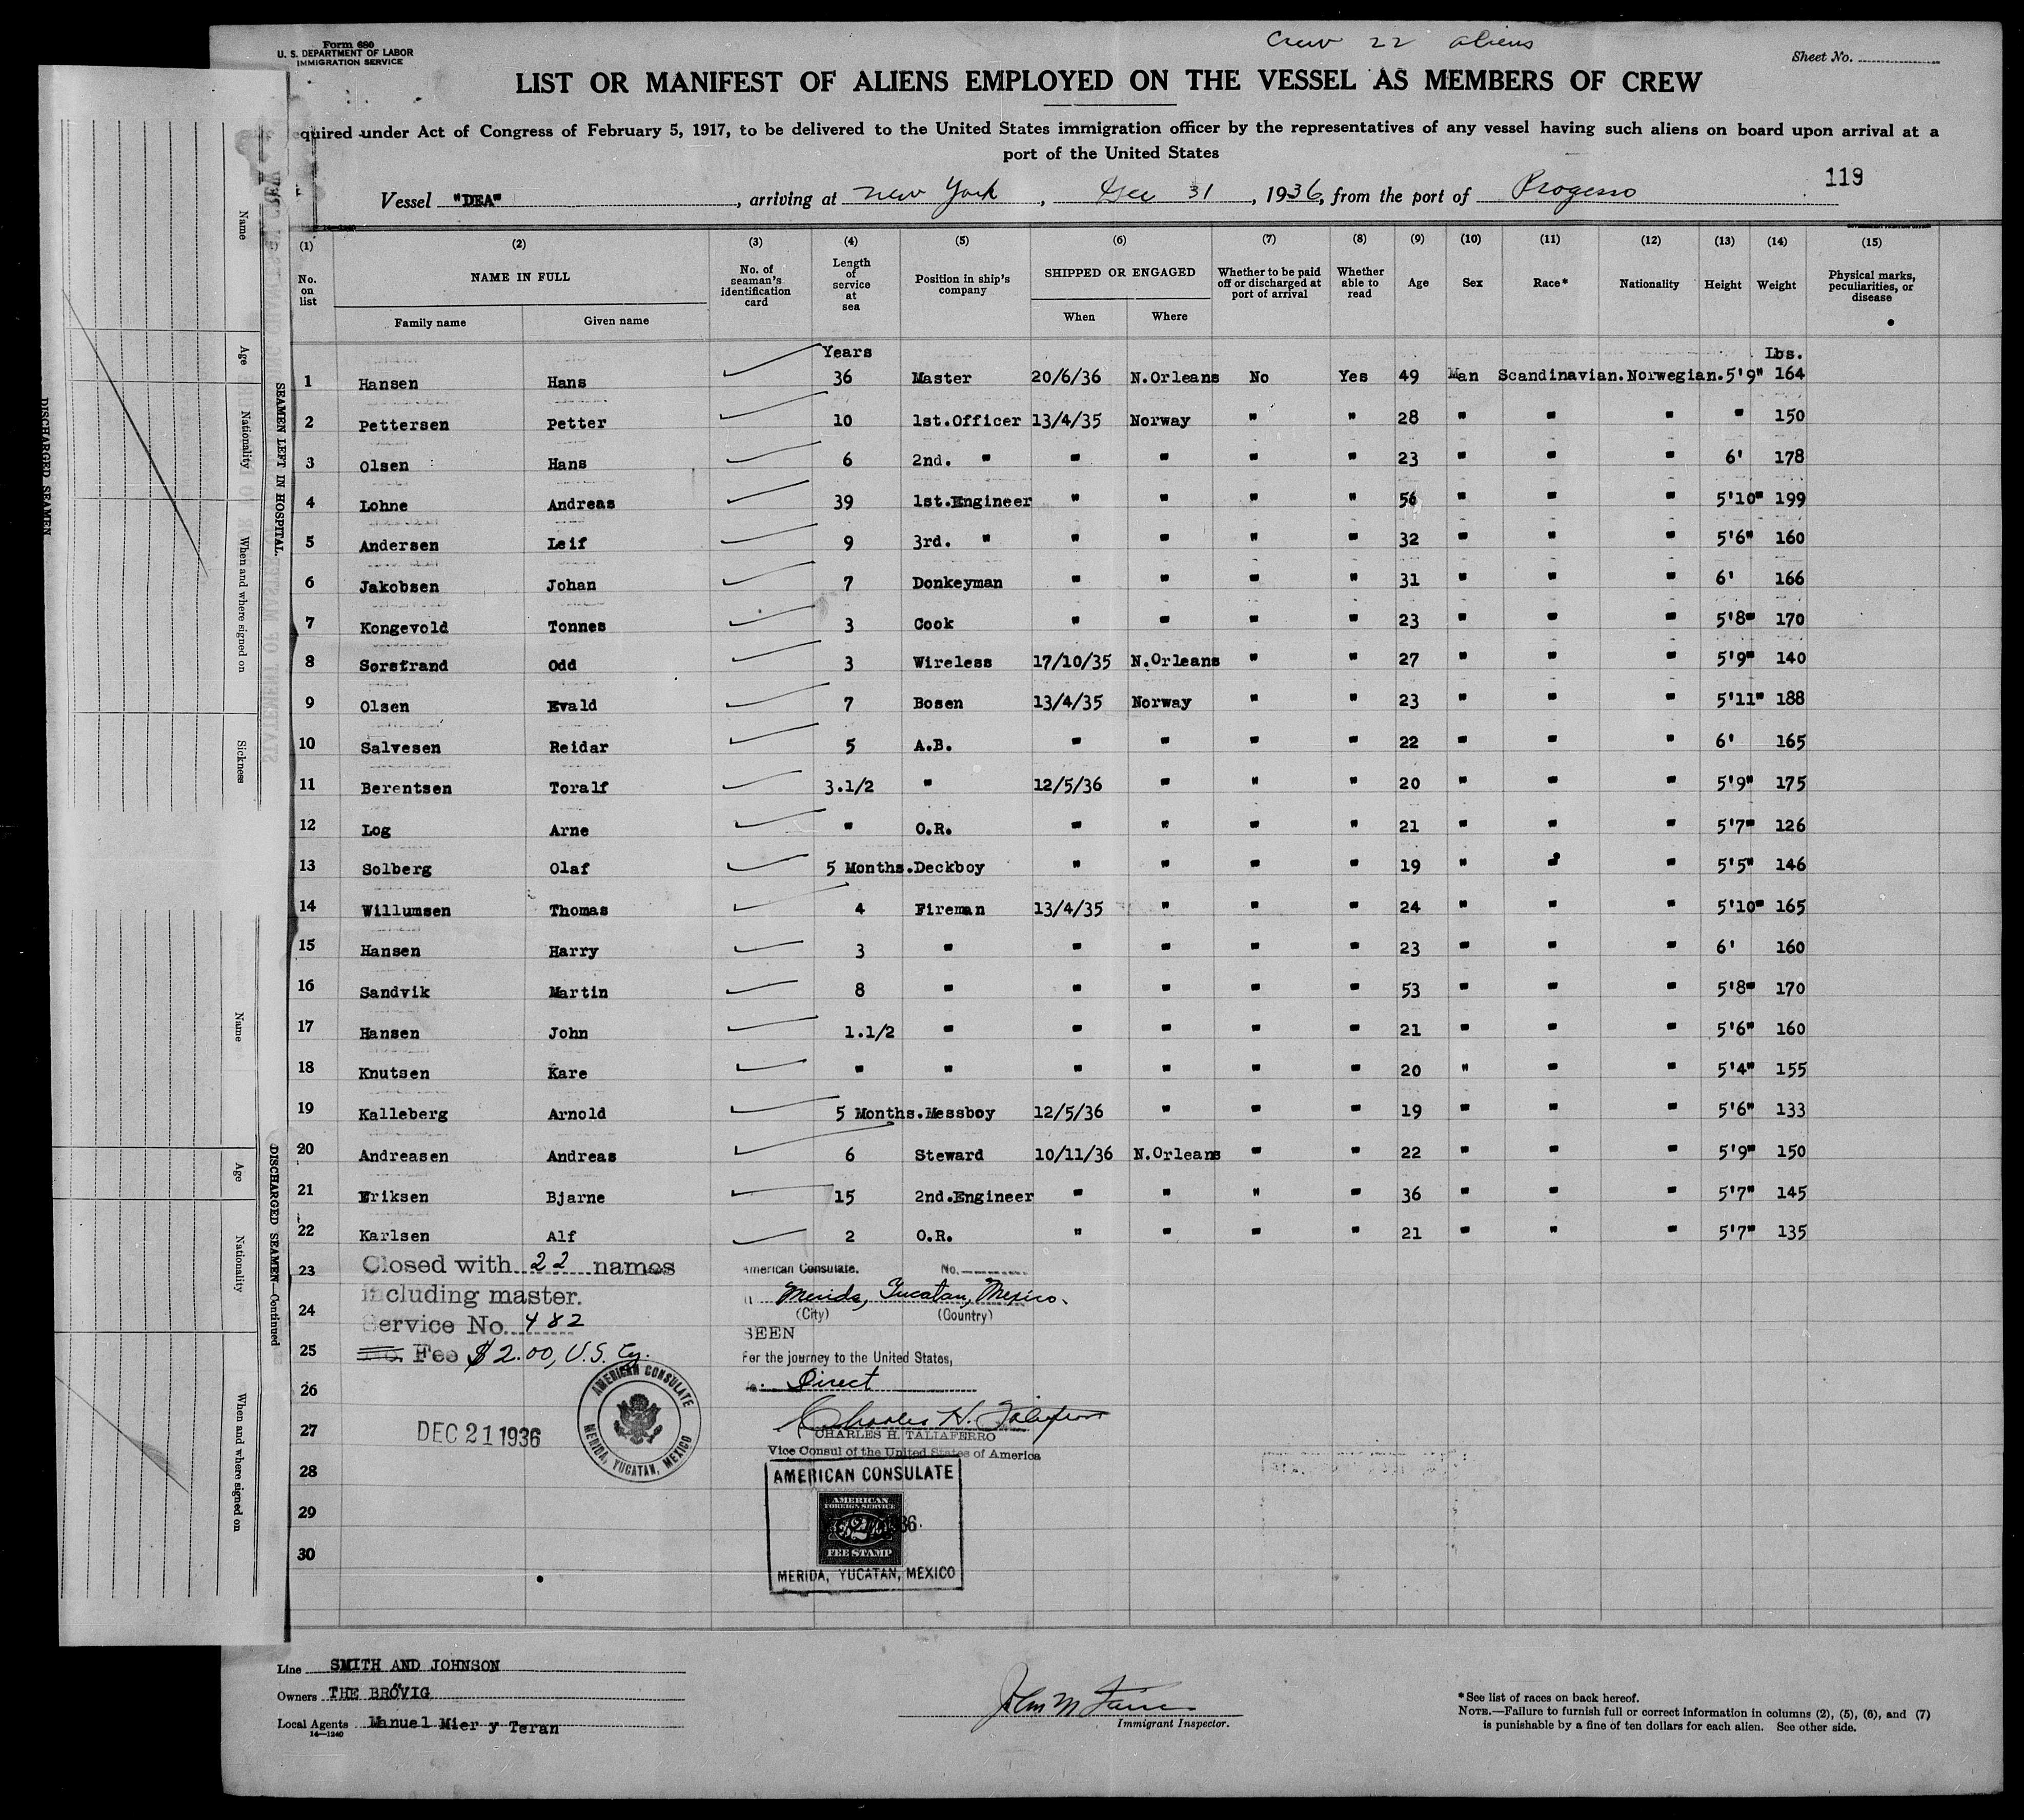 Form 680
U. S. DEPARTMENT OF LABOR
IMMIGRATION SERVICE
Crew 22 aliens
Sheet No.
LIST OR MANIFEST OF ALIENS EMPLOYED ON THE VESSEL AS MEMBERS OF CREW
equired under Act of Congress of February 5, 1917, to be delivered to the United States immigration officer by the representatives of any vessel having such aliens on board upon arrival at a
port of the United States
119
Vessel "DEA", arriving at New York, Dec 31, 1936, from the port of Progreso
(1) (2) (3) (4) (5) (6) (7) (8) (9) (10) (11) (12) (13) (14) (15)
No. on list NAME IN FULL No. of seaman's identification card Length of service at sea Position in ship's company SHIPPED OR ENGAGED Whether to be paid off or discharged at port of arrival Whether able to read Age Sex Race* Nationality Height Weight Physical marks, peculiarities, or disease
Family name Given name When Where
Years Lbs.
1 Hansen Hans 36 Master 20/6/36 N.Orleans No Yes 49 Man Scandinavian. Norwegian. 5'9" 164
2 Pettersen Petter 10 1st.Officer 13/4/35 Norway " " 28 " " " " 150
3 Olsen Hans 6 2nd. " " " " " 23 " " " 6' 178
4 Lohne Andreas 39 1st.Engineer " " " " 56 " " " 5'10" 199
5 Andersen Leif 9 3rd. " " " " " 32 " " " 5'6" 160
6 Jakobsen Johan 7 Donkeyman " " " " 31 " " " 6' 166
7 Kongevold Tonnes 3 Cook " " " " 23 " " " 5'8" 170
8 Sorstrand Odd 3 Wireless 17/10/35 N.Orleans " " 27 " " " 5'9" 140
9 Olsen Evald 7 Bosen 13/4/35 Norway " " 23 " " " 5'11" 188
10 Salvesen Reidar 5 A.B. " " " " 22 " " " 6' 165
11 Berentsen Toralf 3.1/2 " 12/5/36 " " " 20 " " " 5'9" 175
12 Log Arne " O.R. " " " " 21 " " " 5'7" 126
13 Solberg Olaf 5 Months. Deckboy " " " " 19 " " " 5'5" 146
14 Willumsen Thomas 4 Fireman 13/4/35 " " " 24 " " " 5'10" 165
15 Hansen Harry 3 " " " " " 23 " " " 6' 160
16 Sandvik Martin 8 " " " " " 53 " " " 5'8" 170
17 Hansen John 1.1/2 " " " " " 21 " " " 5'6" 160
18 Knutsen Kare " " " " " " 20 " " " 5'4" 155
19 Kalleberg Arnold 5 Months. Messboy 12/5/36 " " " 19 " " " 5'6" 133
20 Andreasen Andreas 6 Steward 10/11/36 N.Orleans " " 22 " " " 5'9" 150
21 Eriksen Bjarne 15 2nd.Engineer " " " " 36 " " " 5'7" 145
22 Karlsen Alf 2 O.R. " " " " 21 " " " 5'7" 135
23
24
25
26
27
28
29
30
Closed with 22 names
including master.
Service No. 482
Fee $2.00, U.S. Cy.
DEC 21 1936
AMERICAN CONSULATE
MERIDA, YUCATAN, MEXICO
American Consulate. No.
Merida, Yucatan, Mexico.
(City) (Country)
SEEN
For the journey to the United States,
Direct
Charles H. Taliaferro
CHARLES H. TALIAFERRO
Vice Consul of the United States of America
AMERICAN CONSULATE
AMERICAN
FOREIGN SERVICE
$2
FEE STAMP
MERIDA, YUCATAN, MEXICO
Line SMITH AND JOHNSON
Owners THE BRÖVIG
Local Agents Manuel Mier y Teran
14—1240
Immigrant Inspector.
*See list of races on back hereof.
NOTE.—Failure to furnish full or correct information in columns (2), (5), (6), and (7)
is punishable by a fine of ten dollars for each alien. See other side.
DISCHARGED SEAMEN
SEAMEN LEFT IN HOSPITAL.
Name
Age
Nationality
When and where signed on
Sickness
DISCHARGED SEAMEN—Continued
Name
Age
Nationality
When and where signed on